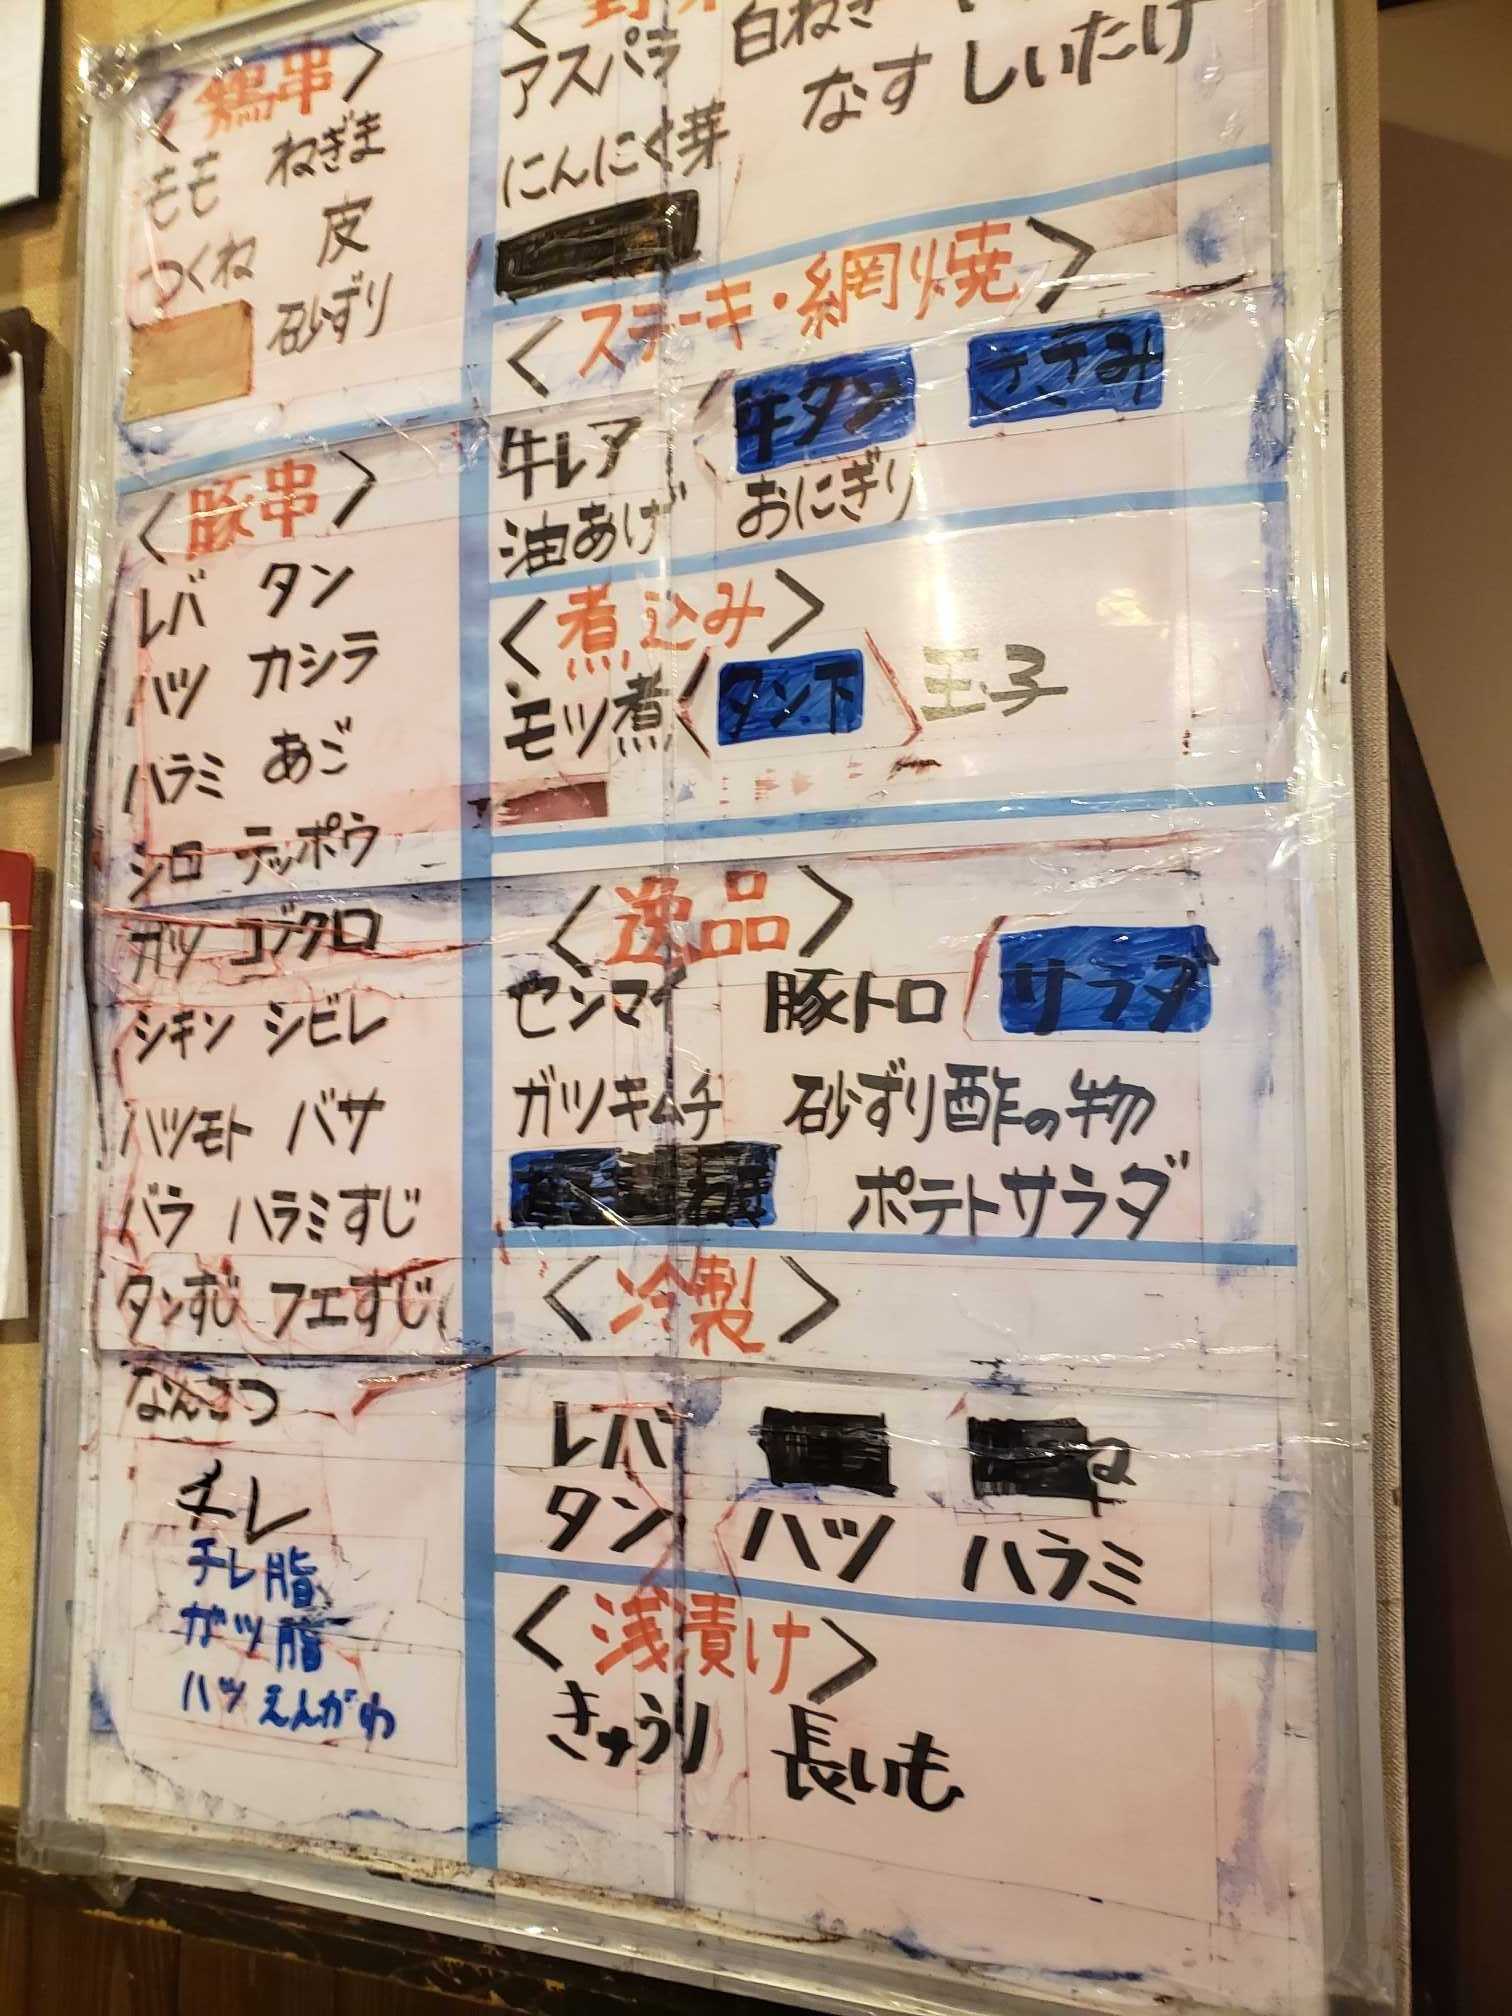 〈鶏串〉
もも ねぎま
つくね 皮
砂ずり
〈豚串〉
レバ タン
ハツ カシラ
ハラミ あご
シロ テッポウ
ガツ コブクロ
シキン シビレ
ハツモト バサ
バラ ハラミすじ
タンすじ フエすじ
なんこつ
チレ
チレ脂
ガツ脂
ハツえんがわ
アスパラ 白ねぎ
なす しいたけ
にんにく芽
〈ステーキ・網焼〉
牛レア 牛タン ささみ
油あげ おにぎり
〈煮込み〉
モツ煮 タン下 玉子
〈逸品〉
センマイ 豚トロ サラダ
ガツキムチ 砂ずり酢の物
ポテトサラダ
〈冷製〉
レバ
タン ハツ ハラミ
〈浅漬け〉
きゅうり 長いも